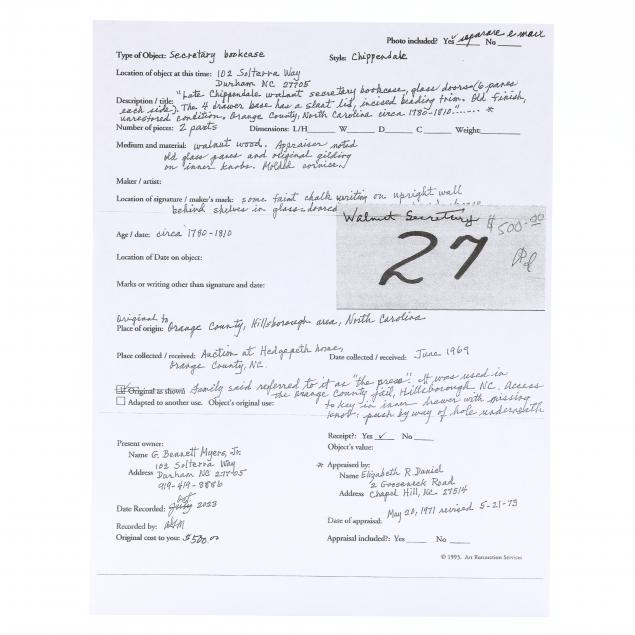 Photo included? Yes ✓ separate e mail No
Type of Object: Secretary bookcase Style: Chippendale
Location of object at this time: 102 Solterra Way
Durham NC 27705
Description / title: "Late Chippendale walnut secretary bookcase, glass doors (6 panes
each side). The 4 drawer base has a slant lid, incised beading trim. Old finish,
unrestored condition, Orange County, North Carolina circa 1780-1810"...... *
Number of pieces: 2 parts Dimensions: L/H W D C Weight:
Medium and material: walnut wood. Appraiser noted
old glass panes and original gilding
on inner knobs. Molded cornice.
Maker / artist:
Location of signature / maker's mark: some faint chalk writing on upright wall
behind shelves in glass-doored
Walnut Secretary $500.00
27
Pd
Age / date: circa 1780-1810
Location of Date on object:
Marks or writing other than signature and date:
Original to
Place of origin: Orange County, Hillsborough area, North Carolina
Place collected / received: Auction at Hedgepeth home, Date collected / received: June 1969
Orange County, NC.
Original as shown Family said referred to it as "the press". It was used in
the Orange County jail, Hillsborough NC. Access
Adapted to another use. Object's original use:
to key in inner drawer with missing
knob: push by way of hole underneath
Receipt? Yes ✓ No
Object's value:
Present owner:
Name G. Bennett Myers, Jr.
Address 102 Solterra Way
Durham NC 27705
919-419-8886
* Appraised by:
Name Elizabeth R. Daniel
2 Gooseneck Road
Address Chapel Hill, NC 27514
Date Recorded: July 2023
Recorded by:
Original cost to you: $500.00
Date of appraisal: May 20, 1971 revised 5-21-73
Appraisal included?: Yes No
© 1995. Art Renovation Services